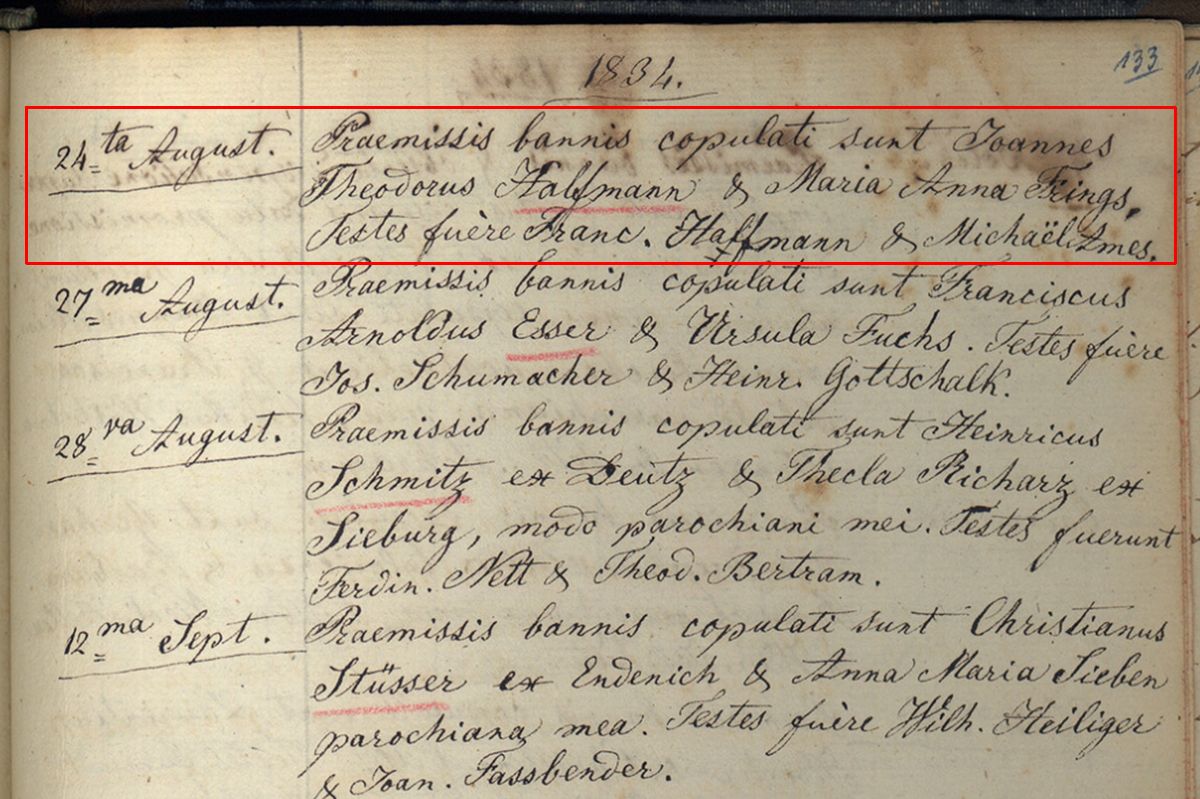 133
1834.
24ta August. Praemissis bannis copulati sunt Joannes
Theodorus Halfmann & Maria Anna Frings.
Testes fuère Franc. Haffmann & Michaël Ames.
27ma August. Praemissis bannis copulati sunt Franciscus
Arnoldus Esser & Ursula Fuchs. Testes fuère
Jos. Schumacher & Heinr. Gottschalk.
28va August. Praemissis bannis copulati sunt Heinricus
Schmitz ex Deutz & Thecla Richarz ex
Sieburg, modo parochiani mei. Testes fuerunt
Ferdin. Nett & Theod. Bertram.
12ma Sept. Praemissis bannis copulati sunt Christianus
Stüsser ex Endenich & Anna Maria Sieben
parochiana mea. Testes fuère Wilh. Heiliger
& Joan. Fassbender.